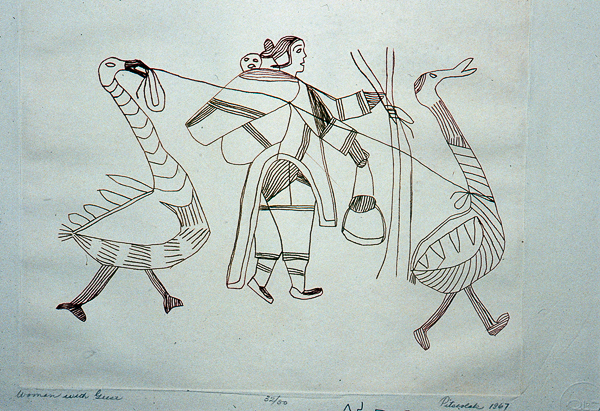 Woman with Geese
33/50
Pitseolak 1967